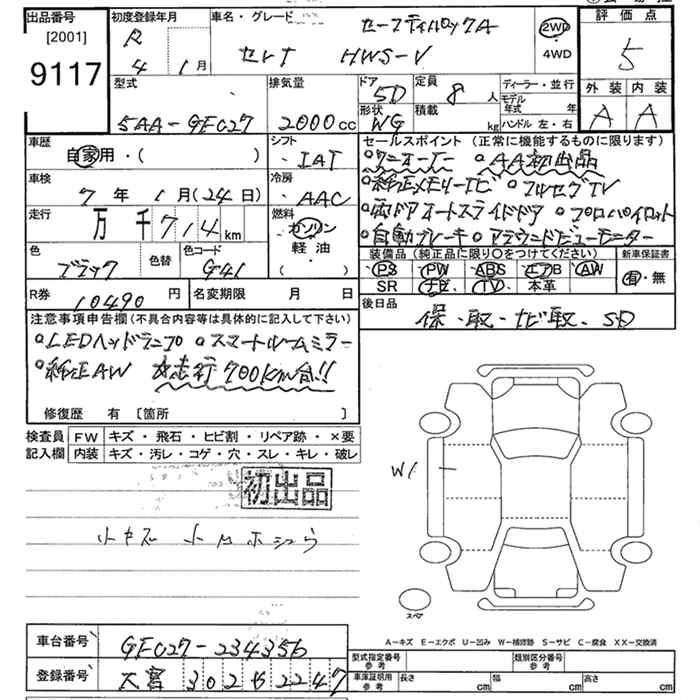 出品番号 [2001]
9117
初度登録年月 R 4 1月
車名・グレード セーフティパックA
セレナ HWS-V
2WD・4WD
評価点 5
外装 内装
A A
型式 5AA-GFC27
排気量 2000cc
ドア 5D
形状 WG
定員 8人
積載 kg
ディーラー・並行
モデル年式 年
ハンドル 左・右
車歴 自家用・( )
シフト ・IAT
車検 7年1月(24日)
冷房 ・AAC
走行 万千714km
燃料 ガソリン
軽油
・( )
色 ブラック
色替
色コード G41
R券 10490円
名変期限 月 日
セールスポイント (正常に機能するものに限ります)
○ワンオーナー ○AA初出品
○純正メモリーナビ ○フルセグTV
○両ドアオートスライドドア ○プロパイロット
○自動ブレーキ ○アラウンドビューモニター
装備品(純正品に限り〇をつけてください)
新車保証書
PS PW ABS エアB AW
SR ナビ TV 本革
有・無
後日品 保・取・ナビ取・SD
注意事項申告欄(不具合内容等は具体的に記入して下さい)
○LEDヘッドランプ ○スマートルームミラー
○純正AW 走行700Km台!!
修復歴 有 [箇所 ]
検査員記入欄
FW キズ・飛石・ヒビ割・リペア跡・×要
内装 キズ・汚レ・コゲ・穴・スレ・キレ・破レ
初出品
小キズ 小
W1
スペア
A-キズ E-エクボ U-凹み W-補修跡 S-サビ C-腐食 XX-交換済
車台番号 GFC27-234356
登録番号 大宮 302 ゼ 2247
型式指定番号 参考
類別区分番号 参考
車庫証明用 参考 長さ cm 幅 cm 高さ cm